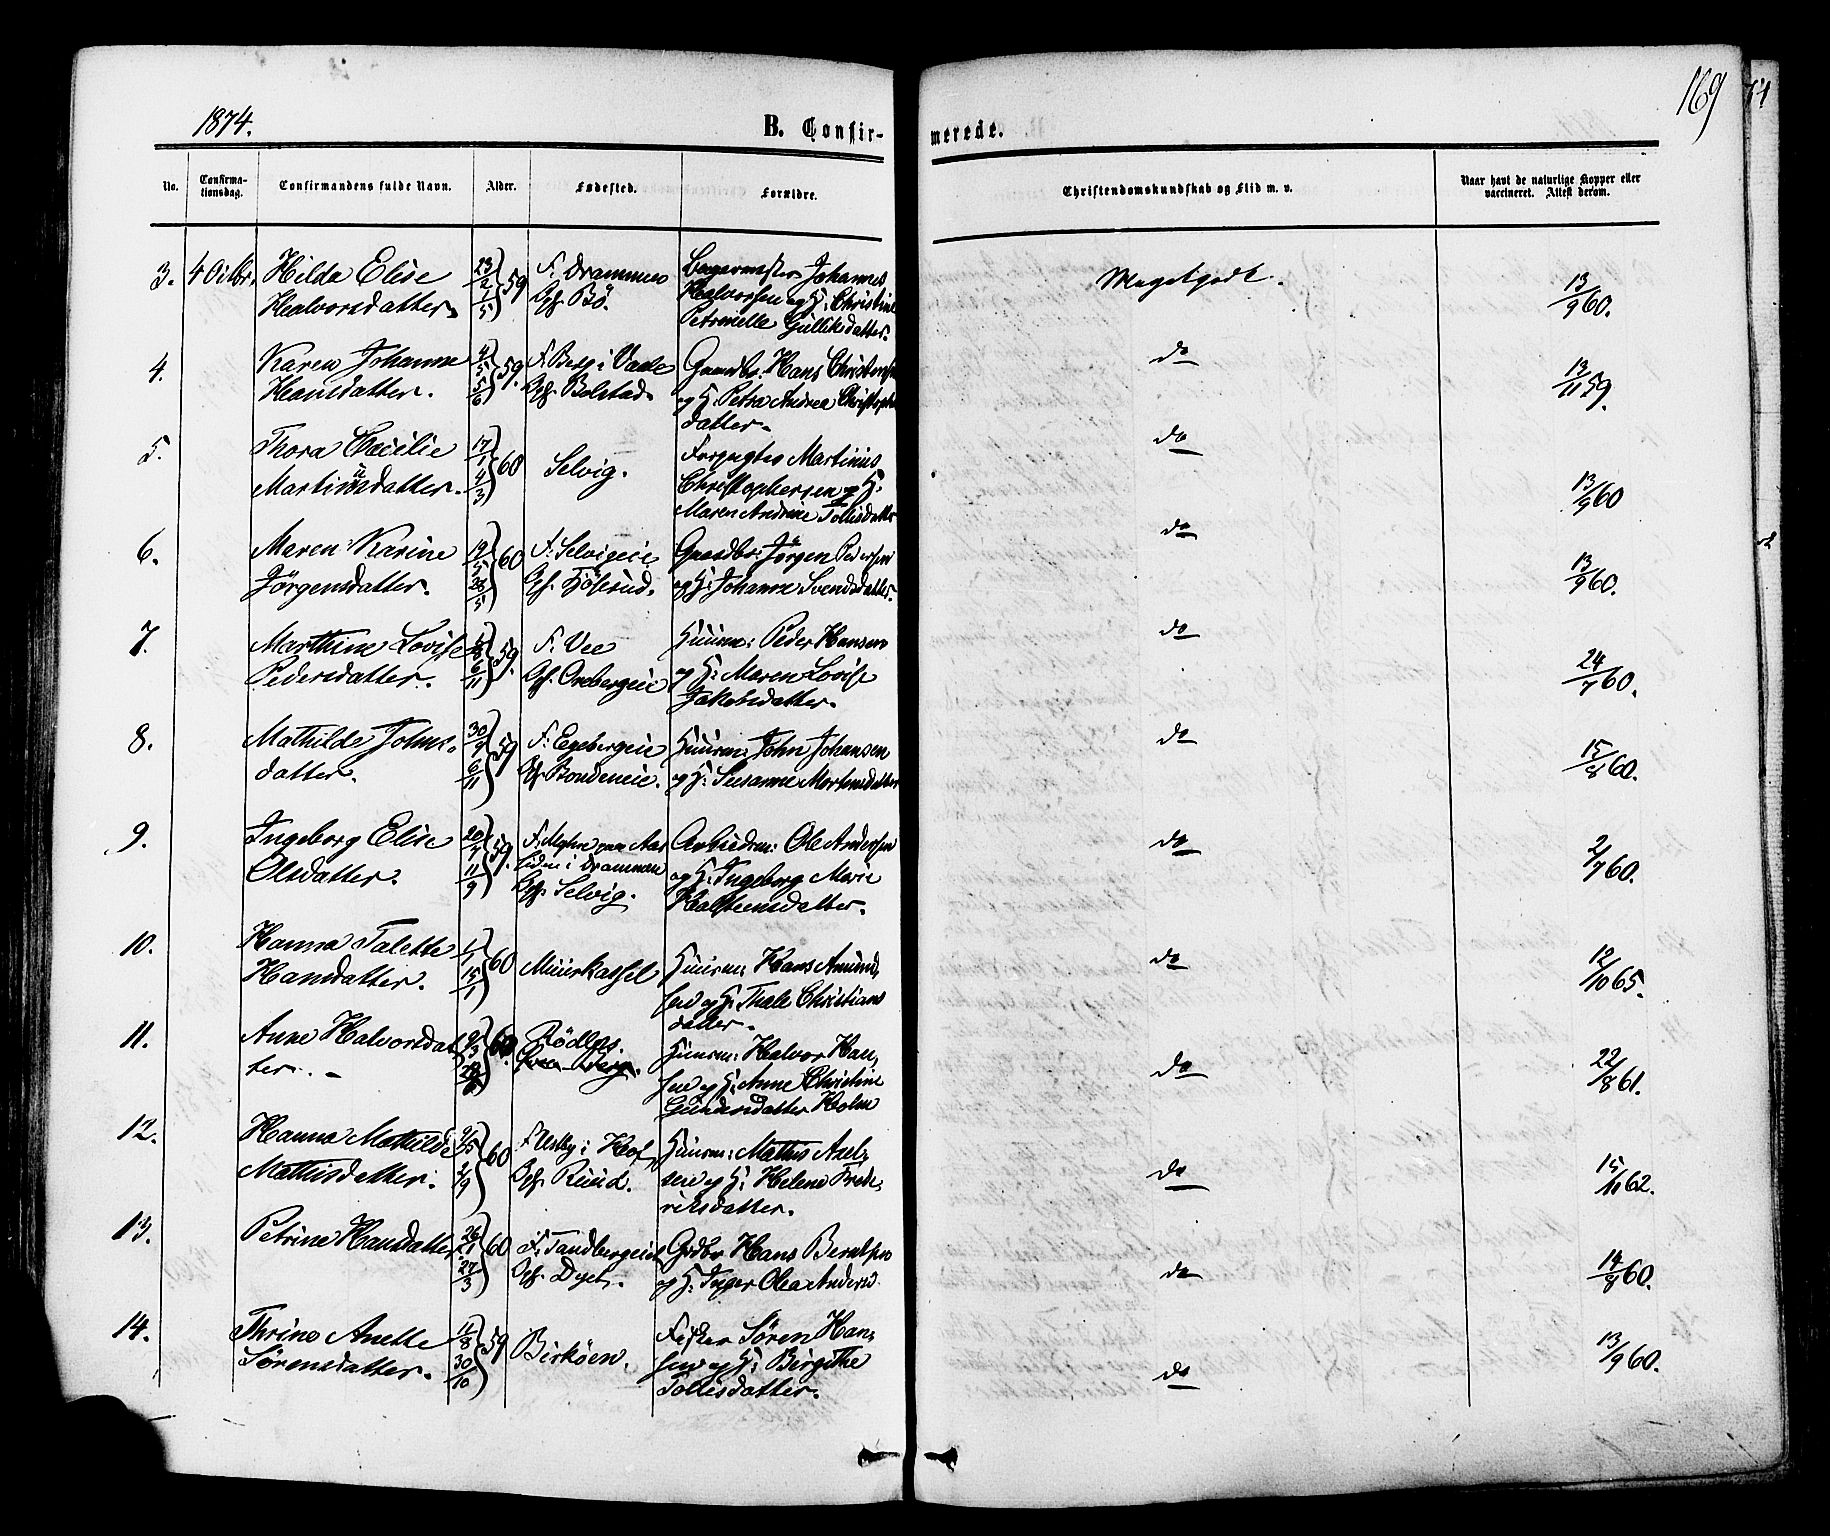 169
1874.
B. Confir-
merede.
No.
Confirma-
tionsdag.
Confirmandens fulde Navn.
Alder.
Fødested.
Forældre.
Christendomskundskab og Flid m. v.
Naar havt de naturlige Kopper eller
vaccineret. Attest derom.
3. 4 Octbr. Hilda Elise
Halvorsdatter.
23/2 1/5 } 59
F. Drammen
Opf. Bö.
Johannes
Halvorsen og H: Christine
Petronelle Gulliksdatter.
Megetgodt.
13/9 60.
4. Karen Johanne
Hansdatter.
4/5 5/6 } 59.
F. Berg i Vaale
Opf. Bolstad.
Gaardbr: Hans Christensen
og H. Petra Andrea Christophe
datter.
do
13/11 59.
5. Thora Cecilie
Martinusdatter.
17/1 4/3 } 60
Selvig.
Forpagter Martinus
Christophersen og H:
Maren Andrine Tollisdatter
do
13/9 60
6. Maren Karine
Jörgensdatter.
19/5 28/5 } 60
F. Selvigeie
Opf.
Gaardbr: Jörgen Pedersen
og H: Johanne Svendsdatter.
do
13/9 60.
7. Marthine Lovise
Pedersdatter.
6/11 } 59.
F. Vee
Opf. Orebergeie
Huusm: Peder Hansen
og H: Maren Lovise
Jakobsdatter.
do
24/7 60.
8. Mathilde Johns-
datter.
30/9 6/11 } 59
F. Egebergeie
Opf. Bondeneie.
Huusm: John Johansen
og H: Susanne Mortensdatter
do
15/8 60.
9. Ingeborg Elise
Olsdatter.
20/7 11/9 } 59.
i Drammen
Opf. Selvig.
Arbeidsm: Ole Andersen
og H: Ingeborg Marie
Halsteensdatter.
do
2/7 60.
10. Hanna Talette
Hansdatter.
1/1 15/1 } 60
Muurkassel
Huusm: Hans Amund-
sen og H: Thale Christians
datter.
do
12/10 65.
11. Anne Halvorsdat
ter.
60.
Rödløs.
Huusm: Halvor Han-
sen og H: Anne Christine
Gundersdatter Holm
do
22/8 61.
12. Hanna Mathilde
Mathisdatter.
9/5 2/9 } 60
i Hof
Opf. Ruud.
Huusm: Mathis Axel-
sen og H: Helene Frede-
riksdatter.
do
15/10 62.
13. Petrine Hansdatter
26/1 27/3 } 60
F. Tandbergeiet
Opf. Dyet.
Grdbr Hans Berntsen
og H: Inger Olea Andersd.
do
14/8 60.
14. Thrine Anette
Sörensdatter.
11/8 30/10 } 59
Birköen.
Fisker Sören Han-
sen og H: Birgithe
Tollisdatter.
do
13/9 60.